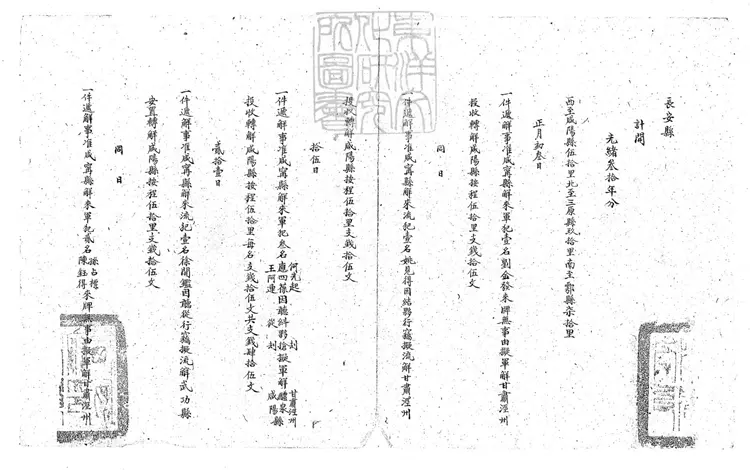 長安縣
計開
光緒叁拾年分
西至咸陽縣伍拾里北至三原縣玖拾里南至鄠縣柒拾里
正月初叁日
一件遞解事准咸寧縣解來軍犯壹名劉金發來牌無事由擬軍解甘肅涇州
投收轉解咸陽縣按程伍拾里支錢拾伍文
同日
一件遞解事准咸寧縣解來流犯壹名姚見得因結夥行竊擬流解甘肅涇州
投收轉解咸陽縣按程伍拾里支錢拾伍文
拾伍日
一件遞解事准咸寧縣解來軍犯叁名何光起應四喜王阿連因聽糾夥搶擬軍解甘肅涇州醴泉咸陽縣
投收轉解咸陽縣按程伍拾里每名支錢拾伍文共支錢肆拾伍文
貳拾壹日
一件遞解事准咸寧縣解來流犯壹名徐開鑑因聽從行竊擬流解武功縣
安置轉解咸陽縣按程伍拾里支錢拾伍文
同日
一件遞解事准咸寧縣解來軍犯貳名孫占標陳鈺得來牌無事由擬軍解甘肅涇州